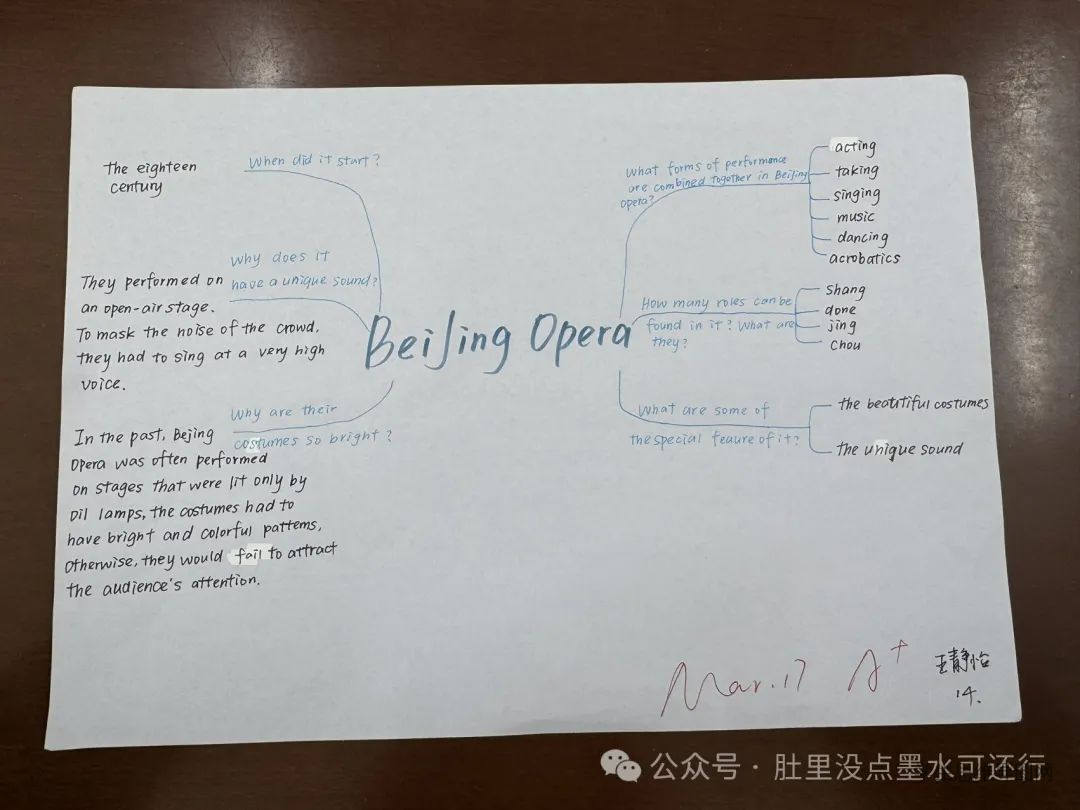 The eighteen
century
When did it start?
Why does it
have a unique sound?
They performed on
an open-air stage.
To mask the noise of the crowd,
they had to sing at a very high
voice.
Why are their
costumes so bright?
In the past, Bejing
Opera was often performed
on stages that were lit only by
oil lamps, the costumes had to
have bright and colorful pattems,
Otherwise, they would fail to attract
the audience's attention.
BeiJing Opera
What forms of performance
are combined together in BeiJing
opera?
acting
taking
singing
music
dancing
acrobatics
How many roles can be
found in it? What are
they?
Shang
done
jing
Chou
What are some of
the special feaure of it?
the beautiful costumes
the unique sound
Mar.17 A+
王静怡
14.
公众号·肚里没点墨水可还行